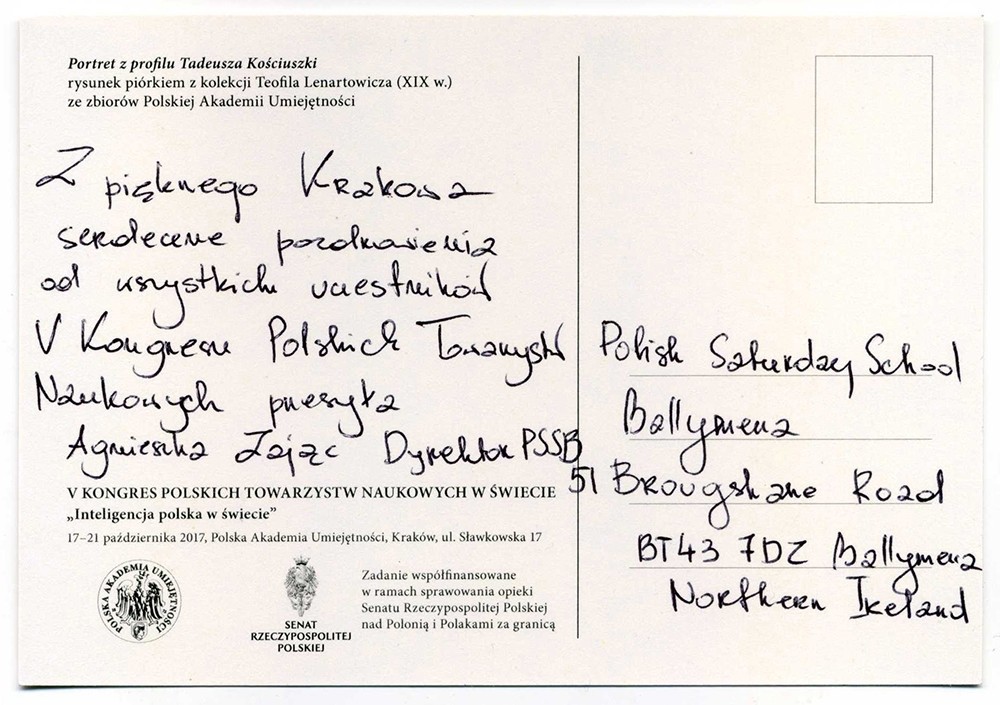 Portret z profilu Tadeusza Kościuszki
rysunek piórkiem z kolekcji Teofila Lenartowicza (XIX w.)
ze zbiorów Polskiej Akademii Umiejętności
Z pięknego Krakowa
serdeczne pozdrowienia
od wszystkich uczestników
V Kongresu Polskich Towarzystw
Naukowych przesyła
Agnieszka Zając Dyrektor PSSB
V KONGRES POLSKICH TOWARZYSTW NAUKOWYCH W ŚWIECIE
„Inteligencja polska w świecie”
17–21 października 2017, Polska Akademia Umiejętności, Kraków, ul. Sławkowska 17
POLSKA AKADEMIA UMIEJĘTNOŚCI
SENAT
RZECZYPOSPOLITEJ
POLSKIEJ
Zadanie współfinansowane
w ramach sprawowania opieki
Senatu Rzeczypospolitej Polskiej
nad Polonią i Polakami za granicą
Polish Saturday School
Ballymena
51 Brougshane Road
BT43 7DZ Ballymena
Northern Ireland